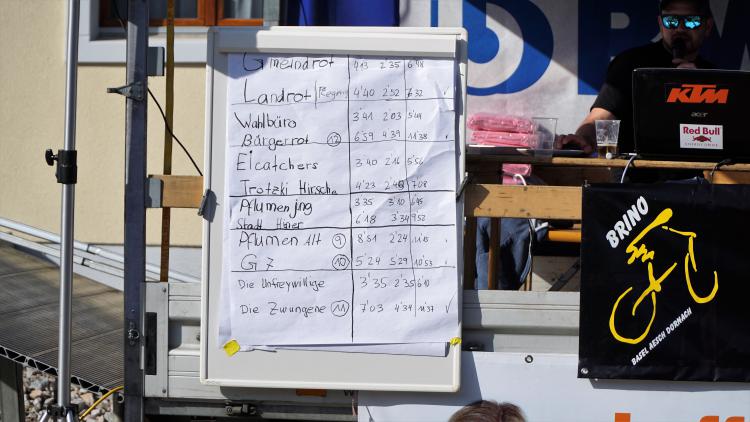 Gmeindrot 4'13 2'35 6'48
Landrot 4'40 2'52 7'32
Wahlbüro 3'41 2'03 5'44
Bürgerrot 12 6'59 4'39 11'38
Eicatchers 3'40 2'16 5'56
Trotzki Hirsche 4'23 7'08
Pflumen jng 3'35 3'10 6'45
Stadt 6'18 3'34 9'52
Pflumen Alt 9 8'51 2'24 11'15
G7 10 5'24 5'29 10'53
Die Unfreywillige 3'35 2'35 6'10
Die Zwungene 11 7'03 4'34 11'37
KTM
acer
Red Bull
ENERGY DRINK
BRINO
BASEL AESCH DORNACH